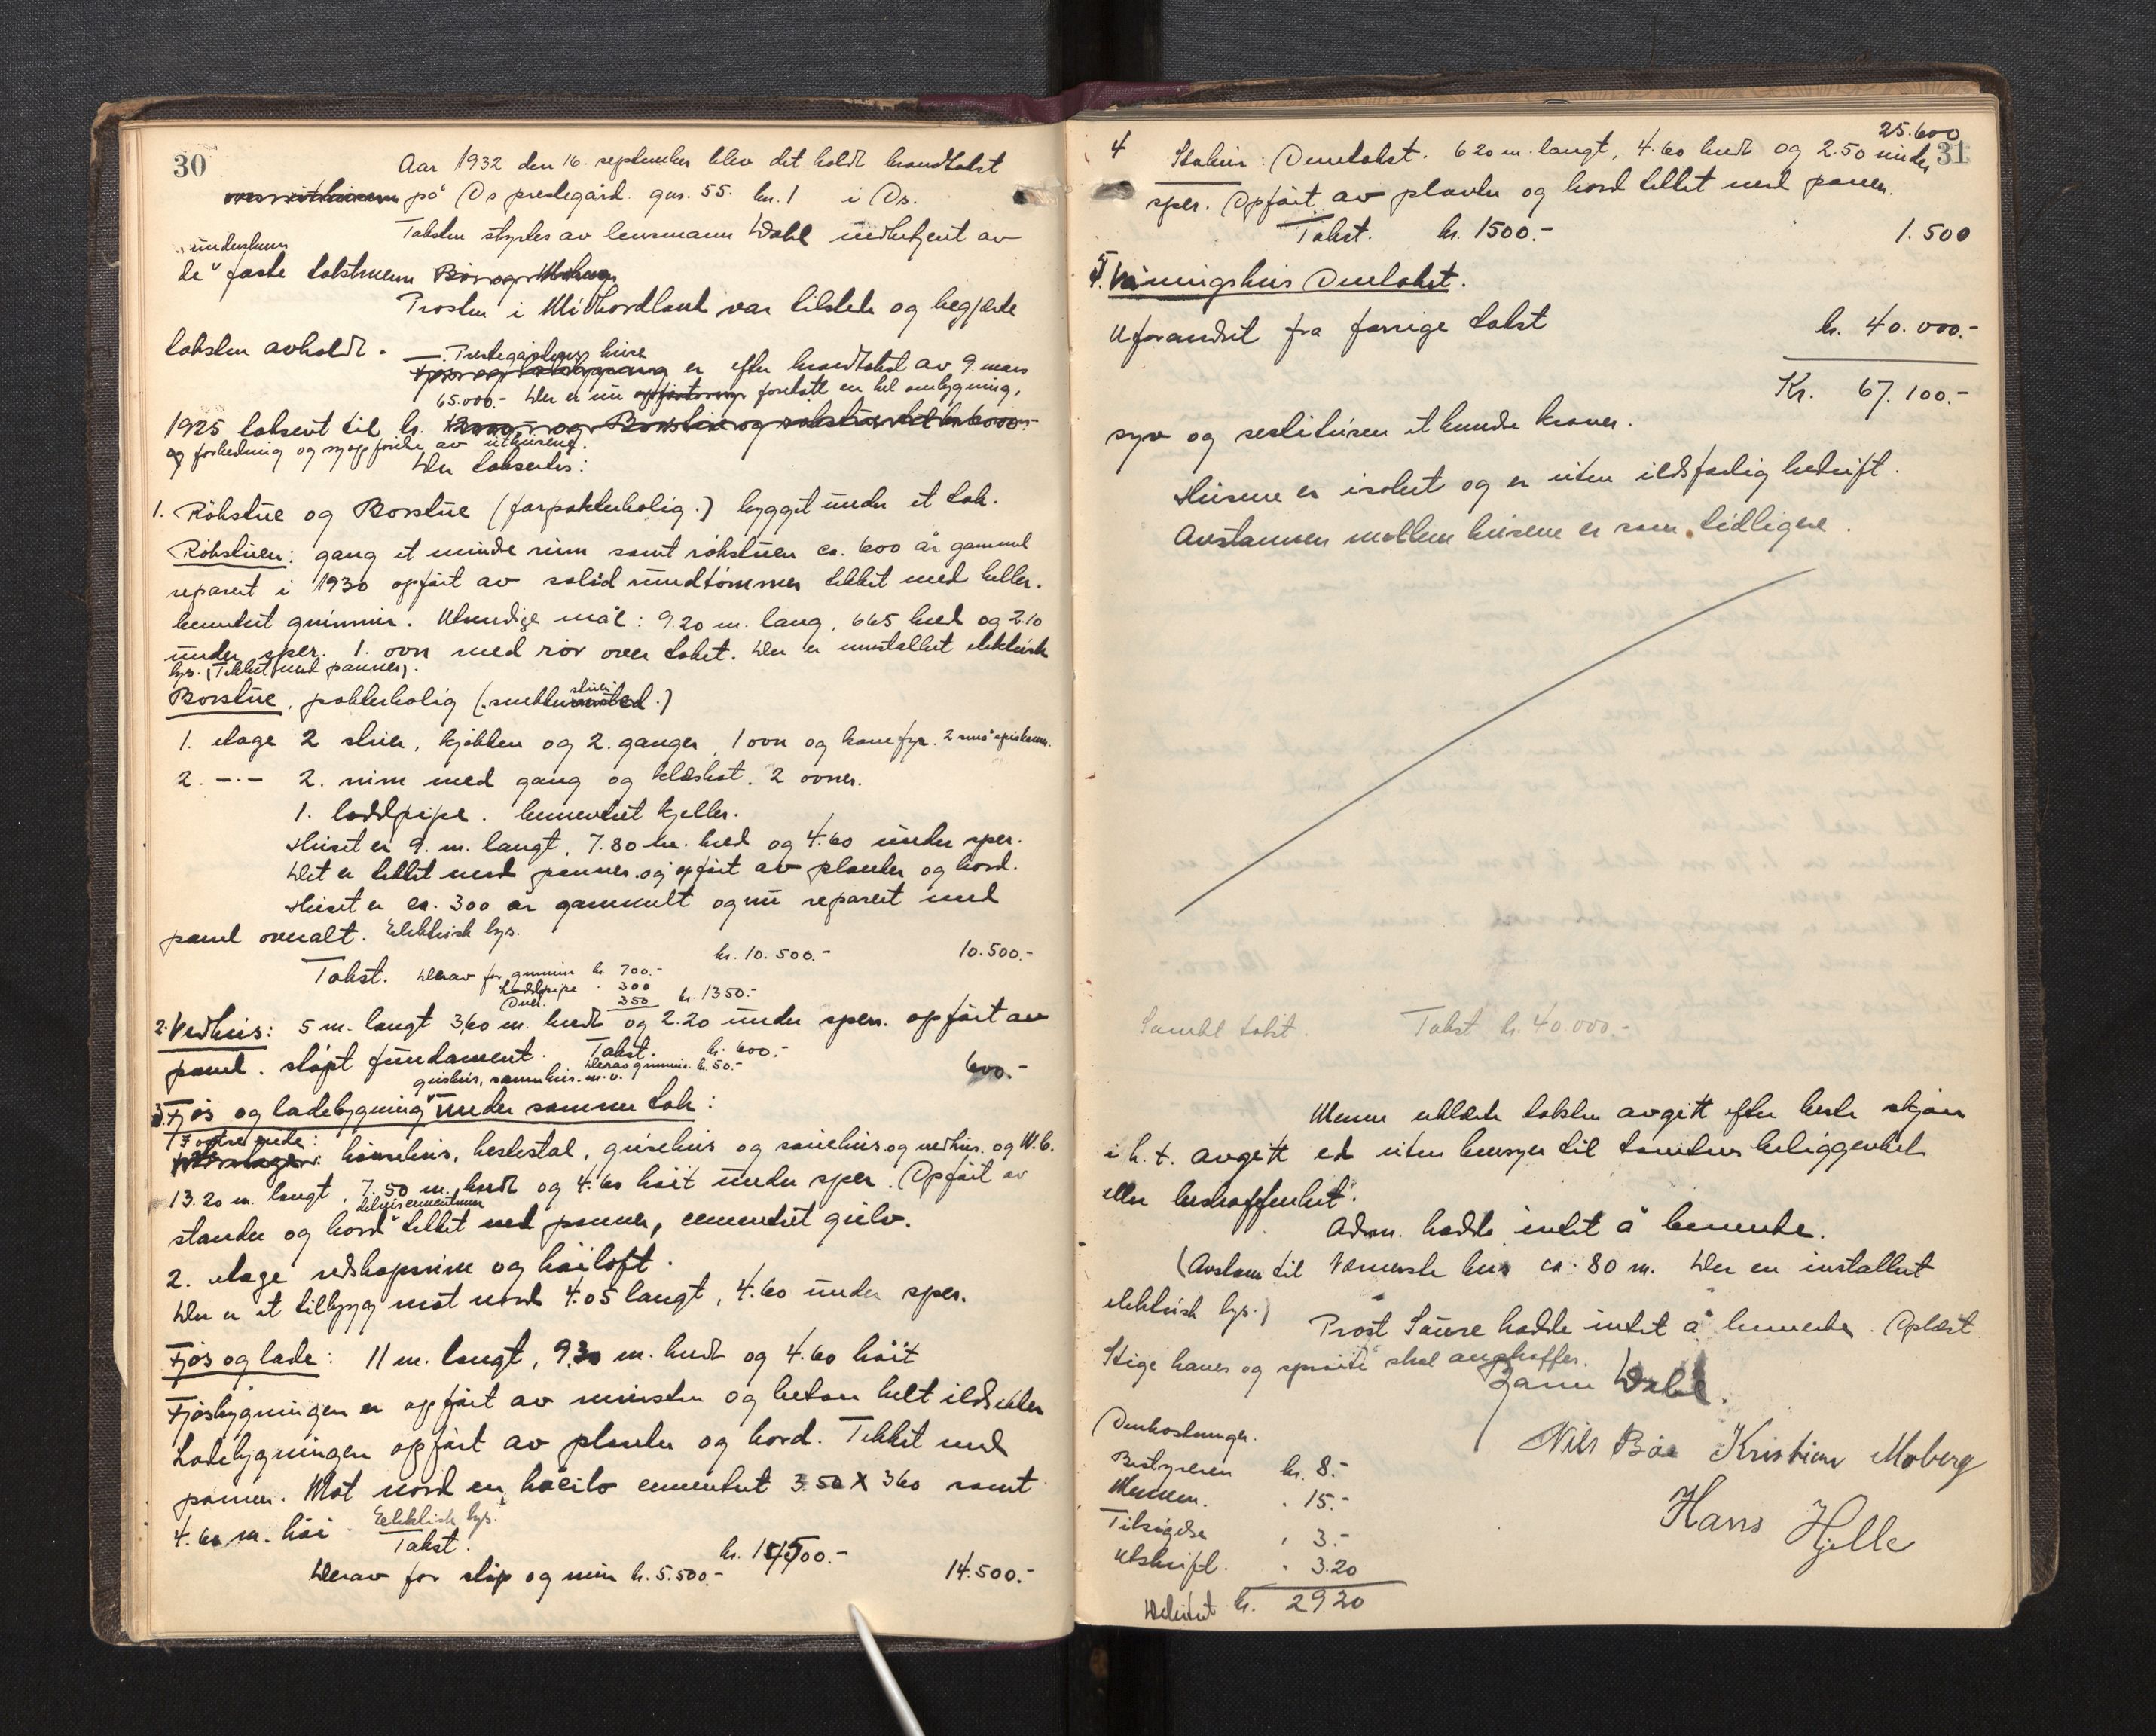 30
Aar 1932 den 16. september blev det holdt brandtakst
på Os prestegård. gnr. 55. bn. 1 i Os.
Taksten styrtes av lensmann Dahl medbetjent av
underskrevne
de faste takstmenn
Prosten i Midthordland var tilstede og begjærte
taksten avholdt.
Prestegårdens huse
er efter brandtakst av 9. mars
65.000.- Der er nu foretatt en hel ombygning,
1925 taksert til kr.
og forbedring og nyopførelse av uthusene.
Der takseres:
1. Röhstue og Borstue (forpakterbolig.) bygget under et tak.
Röhstuen: gang et mindre rum samt röhstuen ca. 600 år gammel
reparert i 1930 opført av solid rundtømmer tekket med heller.
cementert grunmur. Utvendige mål: 9.20 m. lang, 665 bred og 2.10
under sper. 1. ovn med rör over taket. Der er innstallert elektrisk
lys. (Tekket med panner).
Borstue, pakterbolig (
1. etage 2 stuer, kjøkken og 2. ganger, 1 ovn og komfyr. 2 små spiskam.
2. -.- 2. rum med gang og klæskot. 2 ovner.
1. loddpipe. cementert kjeller.
Huset er 9. m. langt, 7.80 m. bred og 4.60 under sper.
Det er tekket med panner og opført av planker og bord.
Huset er ca. 300 år gammelt og nu reparert med
panel overalt. Elektrisk lys.
kr. 10.500.- 10.500.-
Takst. Derav for grunmur kr. 700.-
Loddpipe " 300
Ovner. 350 kr. 1350.-
2. Vedhus: 5 m. langt 3,60 m. bredt og 2.20 under sper. opført av
panel. støpt fundament. Takst. kr. 600.-
Derav grunmur. kr. 50.- 600.-
grishus, m.v.
3. Fjøs og ladebygning under samme tak:
I østre ende: hönsehus, hestestal, grisehus og sauehus og vedhus. og W.C.
13.20 m. langt, 7.50 m. bredt og 4.60 höit under sper. Opført av
delvis cementmur
stander og bord tekket med panner, cementert gulv.
2. etage redskapsrum og höiloft.
Der er et tilbygg mot nord 4.05 langt, 4.60 under sper.
Fjøs og lade: 11 m. langt, 9,30 m. bredt og 4.60 höit
Fjøsbygningen er opført av mursten og beton helt ildsikker
Ladebygningen opført av planker og bord. Tekket med
panner. Mot nord en höisilo cementert 3.50 x 360 samt
4.60 m. höi. Elektrisk lys.
Takst. kr. 14500.- 14.500.-
Derav for støp og mur kr. 5.500.-
25.600
31
4 Stabur: Omtakst. 620 m. langt, 4.60 bredt og 2.50 under
sper. Opført av planker og bord tekket med panner.
Takst. kr. 1500.- 1.500
5. Våningshus Omtakst.
Uforandret fra forrige takst kr. 40.000.-
Kr. 67.100.-
syv og sestitusen et hundre kroner.
Husene er isolert og er uten ildsfarlig bedrift.
Avstannen mellem husene er som tidligere.
Samlet takst. Takst kr. 40.000.-
Menne erklærte taksten avgitt efter beste skjøn
i h. t. avgitt ed uten hensyn til tomtens beliggenhet
eller beskaffenhet.
Adm. hadde intet å bemerke.
(Avstann til nærmeste hus ca. 80 m. Der er installert
elektrisk lys.)
Prost Saure hadde intet å bemerke. Oplæst.
Stige haues og sprøite skal anskaffes.
Dahl.
Nils Bøe Kristian Moberg
Hans Hjelle
Omkostninger.
Bestyreren kr. 8.-
Mennene. " 15.-
Tilsigelse " 3.-
Utskrift. " 3.20
Debitert kr. 29.20